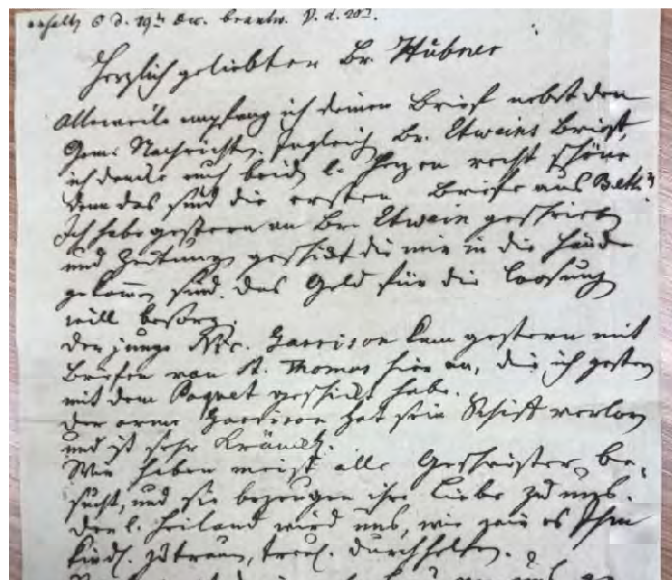 erhalt. d. 19t Dec. beantw. d. 20t.
Herzlich geliebter Br. Hübner
Alleweile empfang ich deinen Brief nebst den
Gem. Nachrichten, zugleich Br. Etweins Brief,
ich danke euch beide l. Herzen recht schöne
denn das sind die ersten Briefe aus Beth.
Ich habe gestern an Br. Etwein geschrieben
und Zeitungen geschickt die mir in die Hände
gekommen sind. Das Geld für die Loosung
will besorgen.
Der junge Nic. Garrison kam gestern mit
Briefen von St. Thomas hier an, die ich gestern
mit dem Paquet geschickt habe.
Der arme Garrison hat sein Schiff verloren
und ist sehr
Wir haben meist alle Geschwister be-
sucht, und sie bezeugen ihre Liebe zu uns.
Der l. Heiland wird uns, wie wir es Ihm
kindl. zutrauen, treul. durchhelfen.